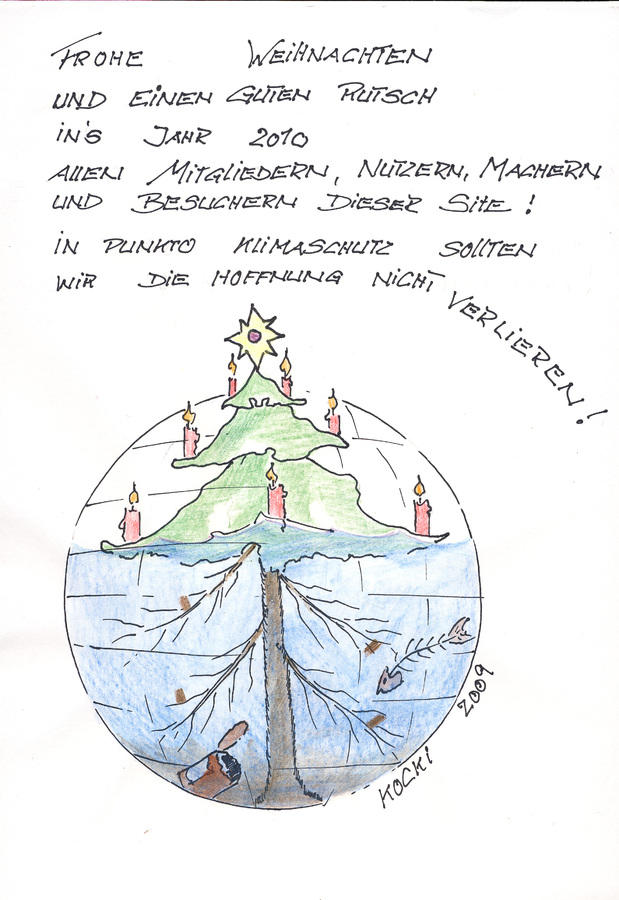 FROHE WEIHNACHTEN
UND EINEN GUTEN RUTSCH
IN'S JAHR 2010
ALLEN MITGLIEDERN, NUTZERN, MACHERN
UND BESUCHERN DIESER SITE!
IN PUNKTO KLIMASCHUTZ SOLLTEN
WIR DIE HOFFNUNG NICHT VERLIEREN!
KOCKI 2009